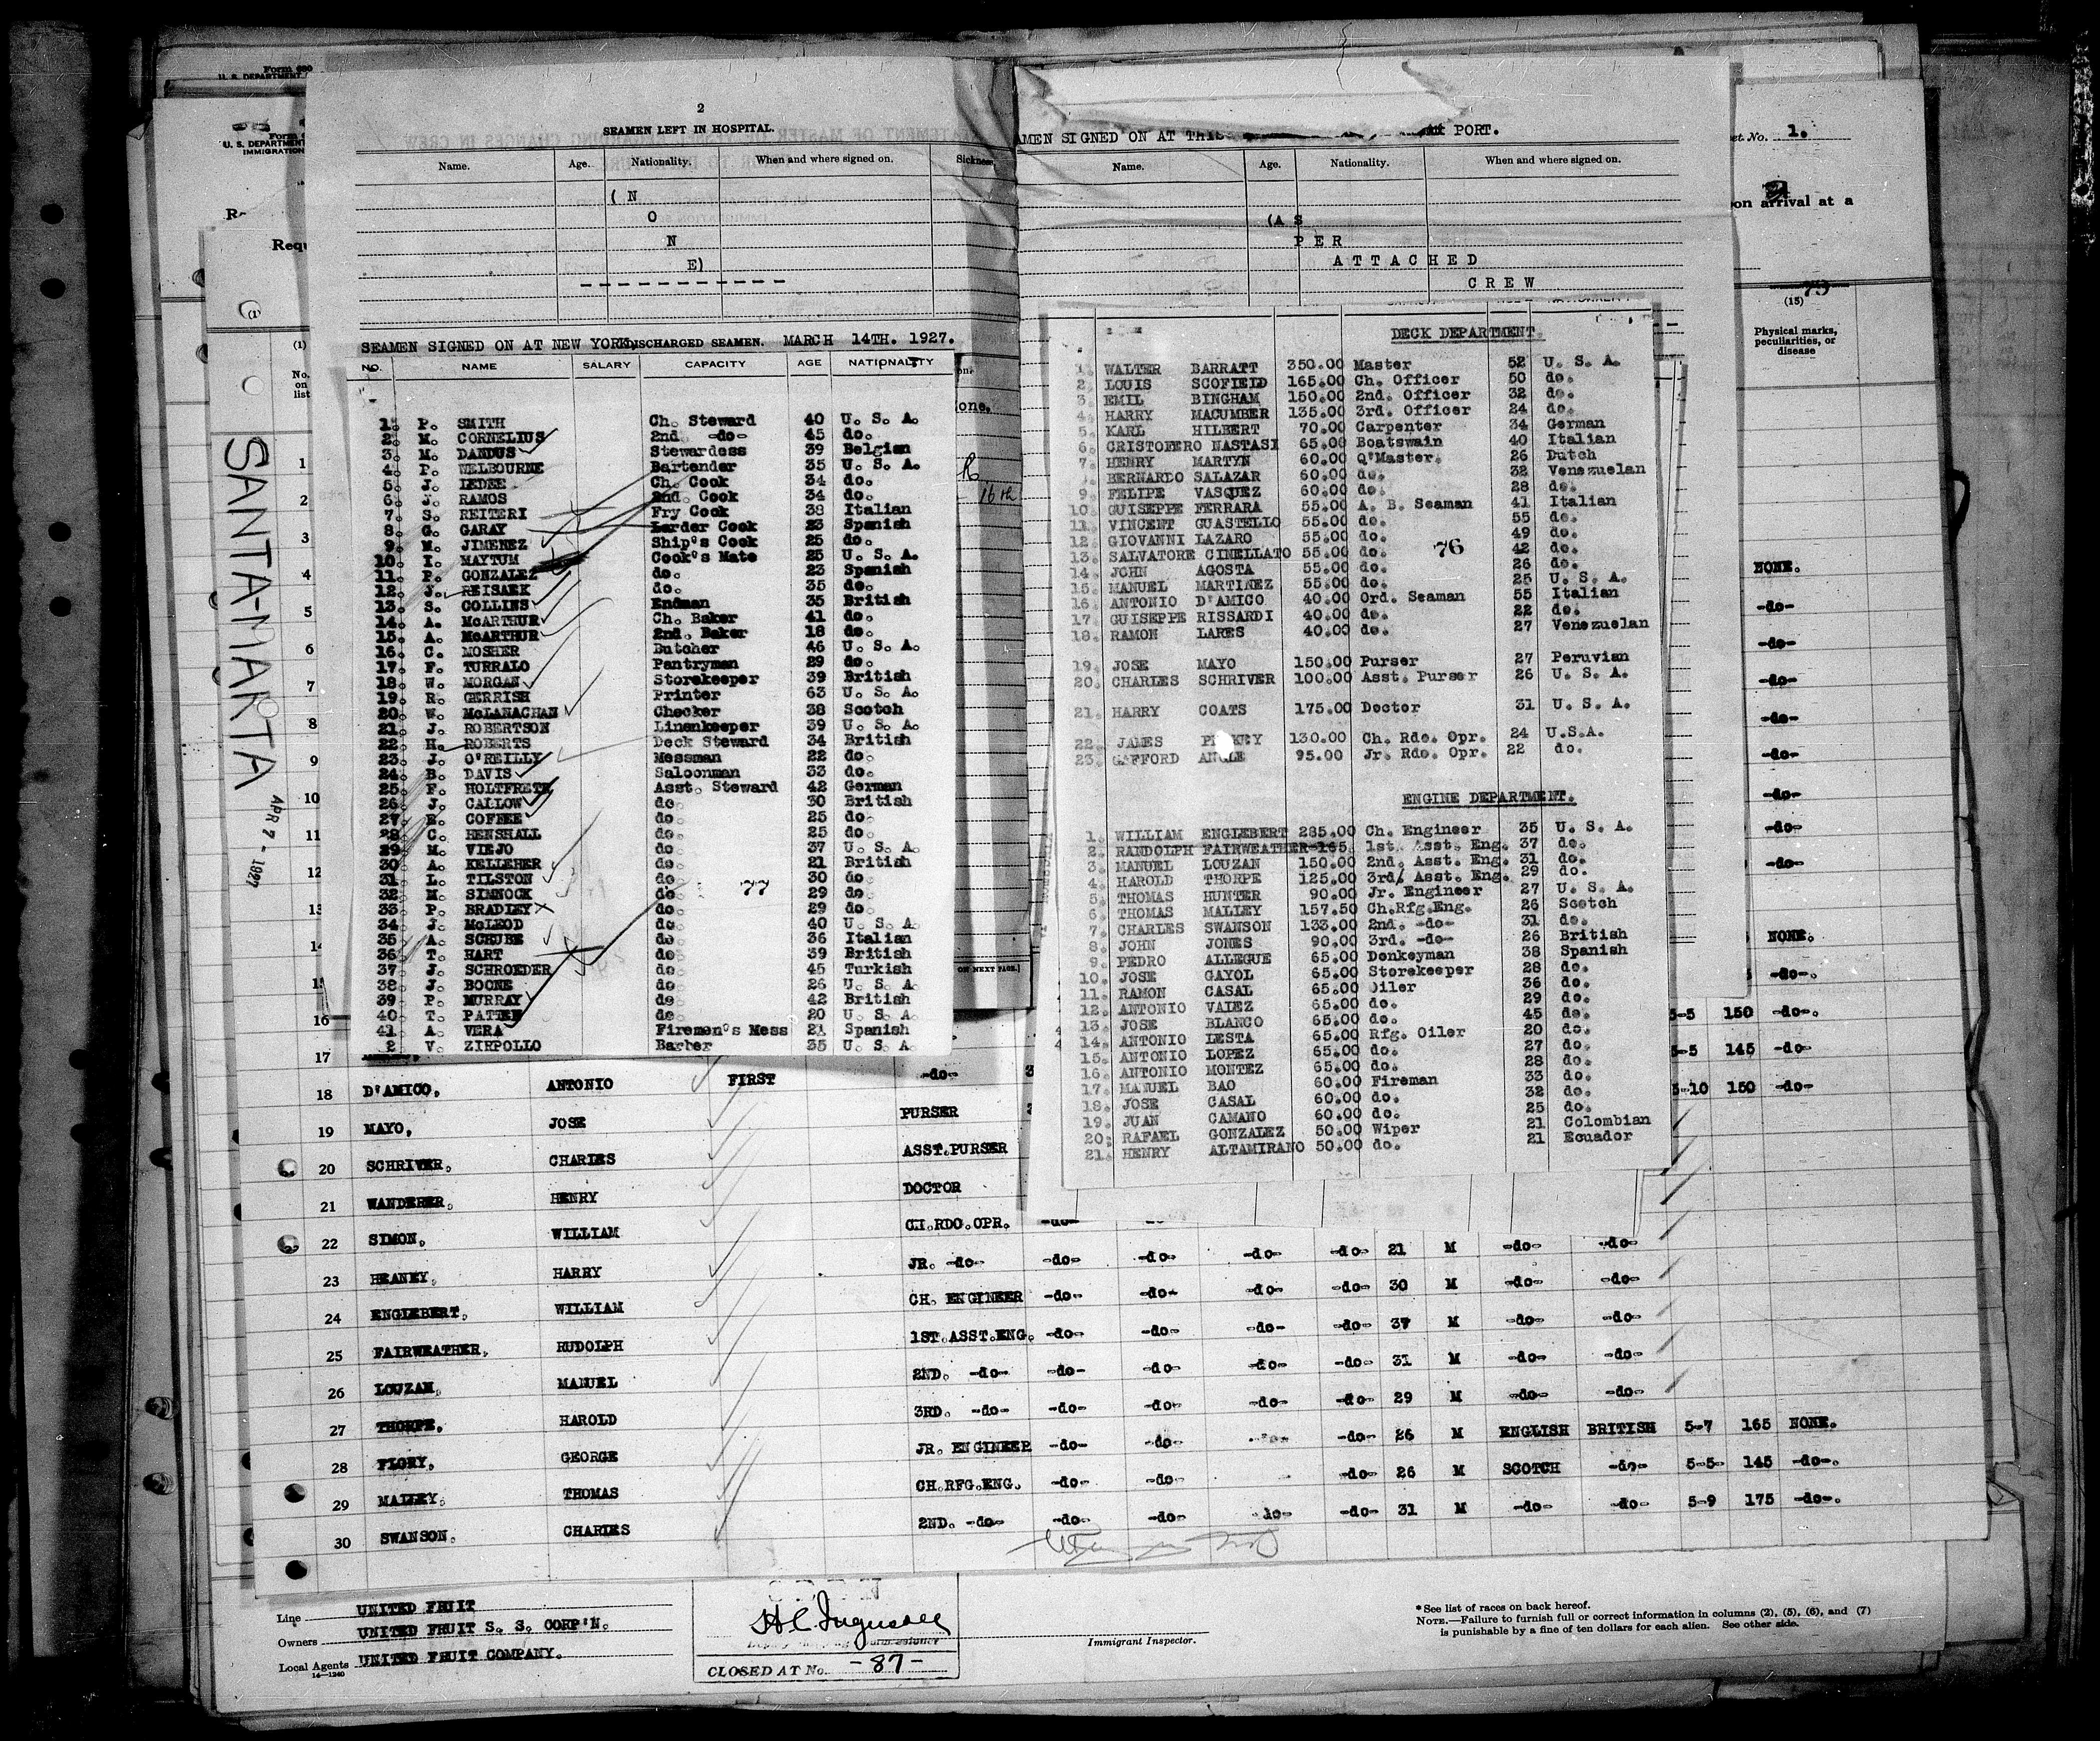 Form 680
U. S. DEPARTMENT
U. S. DEPARTMENT
IMMIGRATION
Requ
SANTA-MARTA
APR 7 - 1927
2
SEAMEN LEFT IN HOSPITAL.
Name. Age. Nationality. When and where signed on. Sickness
( N
O
N
E)
SEAMEN SIGNED ON AT NEW YORK, DISCHARGED SEAMEN. MARCH 14TH. 1927.
NO. NAME SALARY CAPACITY AGE NATIONALITY
1. P. SMITH Ch. Steward 40 U. S. A.
2. M. CORNELIUS 2nd. -do- 45 do.
3. M. DANDUS Stewardess 39 Belgian
4. P. WELBOURNE Bartender 35 U. S. A.
5. J. LEDEE Ch. Cook 34 do.
6. J. RAMOS 2nd. Cook 34 do.
7. S. REITERI Fry Cook 38 Italian
8. G. GARAY Larder Cook 23 Spanish
9. M. JIMENEZ Ship's Cook 25 do.
10. I. MAYTUM Cook's Mate 25 U. S. A.
11. P. GONZALEZ do. 23 Spanish
12. J. REISAEK do. 35 do.
13. S. COLLINS Endman 35 British
14. A. McARTHUR Ch. Baker 41 do.
15. A. McARTHUR 2nd. Baker 18 do.
16. C. MOSHER Butcher 46 U. S. A.
17. F. TURRALO Pantryman 29 do.
18. W. MORGAN Storekeeper 39 British
19. R. GERRISH Printer 63 U. S. A.
20. W. McLANACHAN Checker 38 Scotch
21. J. ROBERTSON Linenkeeper 39 U. S. A.
22. H. ROBERTS Deck Steward 34 British
23. J. O'REILLY Messman 22 do.
24. B. DAVIS Saloonman 33 do.
25. F. HOLTFRETE Asst. Steward 42 German
26. J. CALLOW do. 30 British
27. E. COFFEE do. 25 do.
28. C. HENSHALL do. 25 do.
29. M. VIEJO do. 37 U. S. A.
30. A. KELLEHER do. 21 British
31. L. TILSTON do. 30 do.
32. M. SIMNOCK do. 29 do.
33. P. BRADLEY do. 29 do.
34. J. McLEOD do. 40 U. S. A.
35. A. SCRUBE do. 36 Italian
36. T. HART do. 39 British
37. J. SCHROEDER do. 45 Turkish
38. J. BOONE do. 26 U. S. A.
39. P. MURRAY do. 42 British
40. T. PATTEN do. 20 U. S. A.
41. A. VERA Firemen's Mess 21 Spanish
2 V. ZIRPOLLO Barber 35 U. S. A.
77
16th
ON NEXT PAGE.]
AMEN SIGNED ON AT THIS PORT.
Name. Age. Nationality. When and where signed on.
(A S
P E R
A T T A C H E D
C R E W
DECK DEPARTMENT.
1. WALTER BARRATT 350.00 Master 52 U. S. A.
2. LOUIS SCOFIELD 165.00 Ch. Officer 50 do.
3. EMIL BINGHAM 150.00 2nd. Officer 32 do.
4. HARRY MACUMBER 135.00 3rd. Officer 24 do.
5. KARL HILBERT 70.00 Carpenter 34 German
6. CRISTOFERO NASTASI 65.00 Boatswain 40 Italian
7. HENRY MARTYN 60.00 Q'Master. 26 Dutch
8. BERNARDO SALAZAR 60.00 do. 32 Venezuelan
9. FELIPE VASQUEZ 60.00 do. 28 do.
10. GUISEPPE FERRARA 55.00 A. B. Seaman 41 Italian
11. VINCENT GUASTELLO 55.00 do. 55 do.
12. GIOVANNI LAZARO 55.00 do. 49 do.
13. SALVATORE CINELLATO 55.00 do. 42 do.
14. JOHN AGOSTA 55.00 do. 26 do.
15. MANUEL MARTINEZ 55.00 do. 25 U. S. A.
16. ANTONIO D'AMICO 40.00 Ord. Seaman 55 Italian
17. GUISEPPE RISSARDI 40.00 do. 22 do.
18. RAMON LARES 40.00 do. 27 Venezuelan
76
19. JOSE MAYO 150.00 Purser 27 Peruvian
20. CHARLES SCHRIVER 100.00 Asst. Purser 26 U. S. A.
21. HARRY COATS 175.00 Doctor 31 U. S. A.
22. JAMES 130.00 Ch. Rdo. Opr. 24 U.S.A.
23. GAFFORD ANGLE 95.00 Jr. Rdo. Opr. 22 do.
ENGINE DEPARTMENT.
1. WILLIAM ENGLEBERT 285.00 Ch. Engineer 35 U. S. A.
2. RANDOLPH FAIRWEATHER 165. 1st. Asst. Eng. 37 do.
3. MANUEL LOUZAN 150.00 2nd. Asst. Eng. 31 do.
4. HAROLD THORPE 125.00 3rd/ Asst. Eng. 29 do.
5. THOMAS HUNTER 90.00 Jr. Engineer 27 U. S. A.
6. THOMAS MALLEY 157.50 Ch.Rfg.Eng. 26 Scotch
7. CHARLES SWANSON 133.00 2nd. -do- 31 do.
8. JOHN JONES 90.00 3rd. -do- 26 British
9. PEDRO ALLEGUE 65.00 Donkeyman 38 Spanish
10. JOSE GAYOL 65.00 Storekeeper 28 do.
11. RAMON CASAL 65.00 Oiler 36 do.
12. ANTONIO VALEZ 65.00 do. 29 do.
13. JOSE BLANCO 65.00 do. 45 do.
14. ANTONIO LESTA 65.00 Rfg. Oiler 20 do.
15. ANTONIO LOPEZ 65.00 do. 27 do.
16. ANTONIO MONTEZ 65.00 do. 28 do.
17. MANUEL BAO 60.00 Fireman 33 do.
18. JOSE CASAL 60.00 do. 32 do.
19. JUAN CAMANO 60.00 do. 25 do.
20: RAFAEL GONZALEZ 50.00 Wiper 21 Colombian
21. HENRY ALTAMIRANO 50.00 do. 21 Ecuador
et. No. 1.
on arrival at a
75
(15)
Physical marks, peculiarities, or disease
(1)
No. on list
1
2
3
4 NONE.
5 -do-
6 -do-
7 -do-
8 -do-
9 -do-
10 -do-
11 -do-
12 -do-
13
14 NONE.
15 -do-.
16 5-5 150 -do-.
17 5-5 145 -do-
18 D'AMICO, ANTONIO FIRST -do- 5-10 150 -do-
19 MAYO, JOSE PURSER
20 SCHRIVER, CHARLES ASST.PURSER
21 WANDERER, HENRY DOCTOR
22 SIMON, WILLIAM CH.RDO.OPR. -do-
23 HEANEY, HARRY JR. -do- -do- -do- -do- -do- 21 M -do- -do-
24 ENGLEBERT, WILLIAM CH. ENGINEER -do- -do- -do- -do- 30 M -do- -do-
25 FAIRWEATHER, RUDOLPH 1ST.ASST.ENG. -do- -do- -do- -do- 37 M -do- -do-
26 LOUZAN, MANUEL 2ND. -do- -do- -do- -do- -do- 31 M -do- -do-
27 THORPE, HAROLD 3RD. -do- -do- -do- -do- -do- 29 M -do- -do-
28 FLORY, GEORGE JR. ENGINEER -do- -do- -do- 26 M ENGLISH BRITISH 5-7 165 NONE.
29 MALLEY, THOMAS CH.RFG.ENG. -do- -do- -do- 26 M SCOTCH -do- 5-5- 145 -do-.
30 SWANSON, CHARLES 2ND. -do- -do- -do- -do- -do- 31 M -do- -do- 5-9 175 -do-.
Line UNITED FRUIT
Owners UNITED FRUIT S. S. CORP'N.
Local Agents UNITED FRUIT COMPANY.
14-1240
CLOSED AT No. -87-
Immigrant Inspector.
* See list of races on back hereof.
NOTE.—Failure to furnish full or correct information in columns (2), (5), (6), and (7)
is punishable by a fine of ten dollars for each alien. See other side.